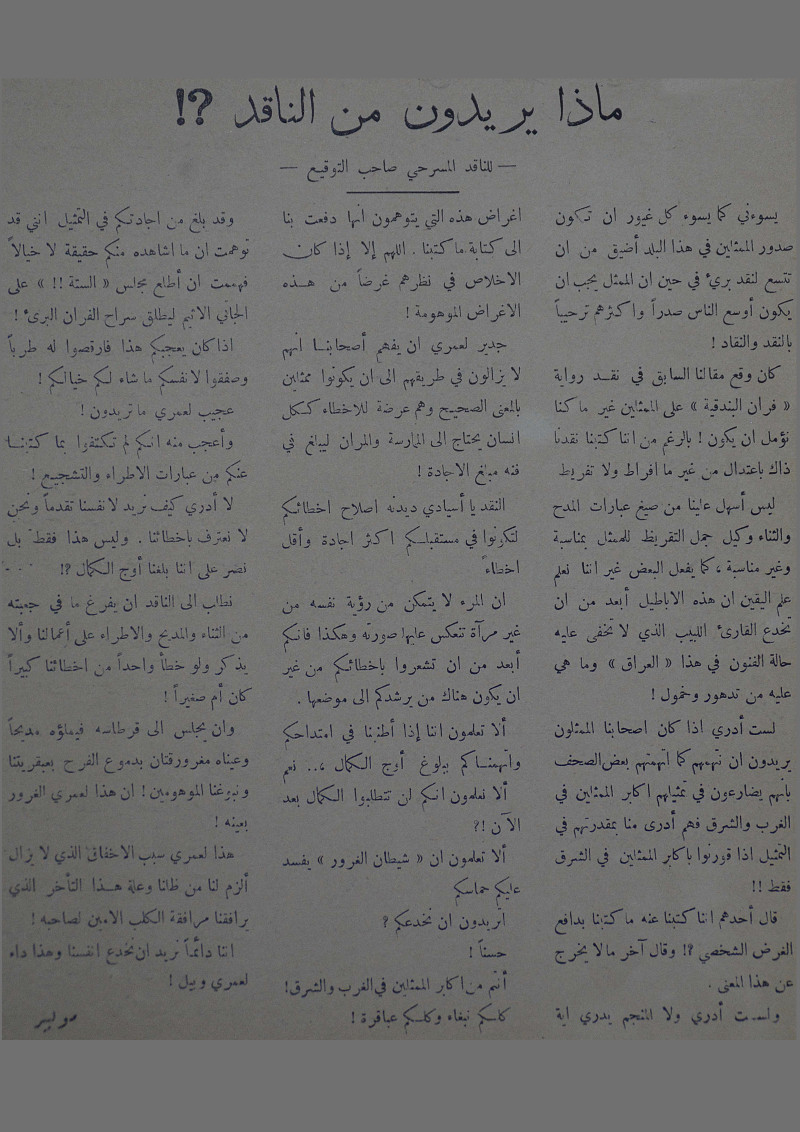 ماذا يريدون من الناقد ؟!
— للناقد المسرحي صاحب التوقيع —
يسوءني كما يسوء كل غيور ان تكون
صدور الممثلين في هذا البلد أضيق من ان
تتسع لنقد بريء في حين ان الممثل يجب ان
يكون أوسع الناس صدراً واكثرهم ترحيباً
بالنقد والنقاد !
كان وقع مقالنا السابق في نقد رواية
« فران البندقية » على الممثلين غير ما كنا
نؤمل ان يكون ! بالرغم من اننا كتبنا نقدنا
ذاك باعتدال من غير ما افراط ولا تفريط
ليس أسهل علينا من صيغ عبارات المدح
والثناء وكيل جمل التقريظ للممثل بمناسبة
وغير مناسبة ، كما يفعل البعض غير اننا نعلم
علم اليقين ان هذه الاباطيل أبعد من ان
تخدع القارىء اللبيب الذي لا تخفى عليه
حالة الفنون في هذا « العراق » وما هي
عليه من تدهور وخمول !
لست أدري اذا كان اصحابنا الممثلون
يريدون ان نتهمهم كما اتهمتهم بعض الصحف
بأنهم يضارعون في تمثيلهم اكابر الممثلين في
الغرب والشرق فهم أدرى منا بمقدرتهم في
التمثيل اذا قورنوا باكابر الممثلين في الشرق
فقط !!
قال أحدهم اننا كتبنا عنه ما كتبنا بدافع
الغرض الشخصي ؟! وقال آخر ما لا يخرج
عن هذا المعنى .
ولست أدري ولا المنجم يدري اية
اغراض هذه التي يتوهمون انها دفعت بنا
الى كتابة ما كتبنا . اللهم إلا إذا كان
الاخلاص في نظرهم غرضاً من هذه
الاغراض الموهومة !
جدير لعمري ان يفهم أصحابنا انهم
لا يزالون في طريقهم الى ان يكونوا ممثلين
بالمعنى الصحيح وهم عرضة للاخطاء ككل
انسان يحتاج الى الممارسة والمران ليبلغ في
فنه مبلغ الاجادة !
النقد يا أسيادي ديدنه اصلاح اخطائكم
لتكونوا في مستقبلكم اكثر اجادة وأقل
اخطاء
ان المرء لا يتمكن من رؤية نفسه من
غير مرآة تنعكس عليها صورته وهكذا فانكم
أبعد من ان تشعروا باخطائكم من غير
ان يكون هناك من يرشدكم الى موضعها .
ألا تعلمون اننا إذا أطنبنا في امتداحكم
واتهمناكم ببلوغ أوج الكمال ،.. نعم
ألا تعلمون انكم لن تتطلبوا الكمال بعد
الآن !؟
ألا تعلمون ان « شيطان الغرور » يفسد
عليكم حماسكم
اتريدون ان نخدعكم ؟
حسناً !
أنتم من اكابر الممثلين في الغرب والشرق!
كلكم نبغاء وكلكم عباقرة !
وقد بلغ من اجادتكم في التمثيل انني قد
توهمت ان ما اشاهده منكم حقيقة لا خيالاً
فهممت ان أطلع مجلس « الستة !! » على
الجاني الاثيم ليطلق سراح الفران البرىء !
اذا كان يعجبكم هذا فارقصوا له طرباً
وصفقوا لانفسكم ما شاء لكم خيالكم !
عجيب لعمري ما تريدون !
وأعجب منه انكم لم تكتفوا بما كتبنا
عنكم من عبارات الاطراء والتشجيع !
لا أدري كيف نريد لانفسنا تقدماً ونحن
لا نعترف باخطائنا . وليس هذا فقط بل
نصر على اننا بلغنا أوج الكمال ؟!
نطلب الى الناقد ان يفرغ ما في جعبته
من الثناء والمديح والاطراء على أعمالنا وألا
يذكر ولو خطأ واحداً من اخطائنا كبيراً
كان أم صغيراً !
وان يجلس الى قرطاسه فيملؤه مديحاً
وعيناه مغرورقتان بدموع الفرح بعبقريتنا
ونبوغنا الموهومين ! ان هذا لعمري الغرور
بعينه !
هذا لعمري سبب الاخفاق الذي لا يزال
ألزم لنا من ظلنا وعلة هذا التأخر الذي
يرافقنا مرافقة الكلب الامين لصاحبه !
اننا دائماً نريد ان نخدع انفسنا وهذا داء
لعمري وبيل !
موليير